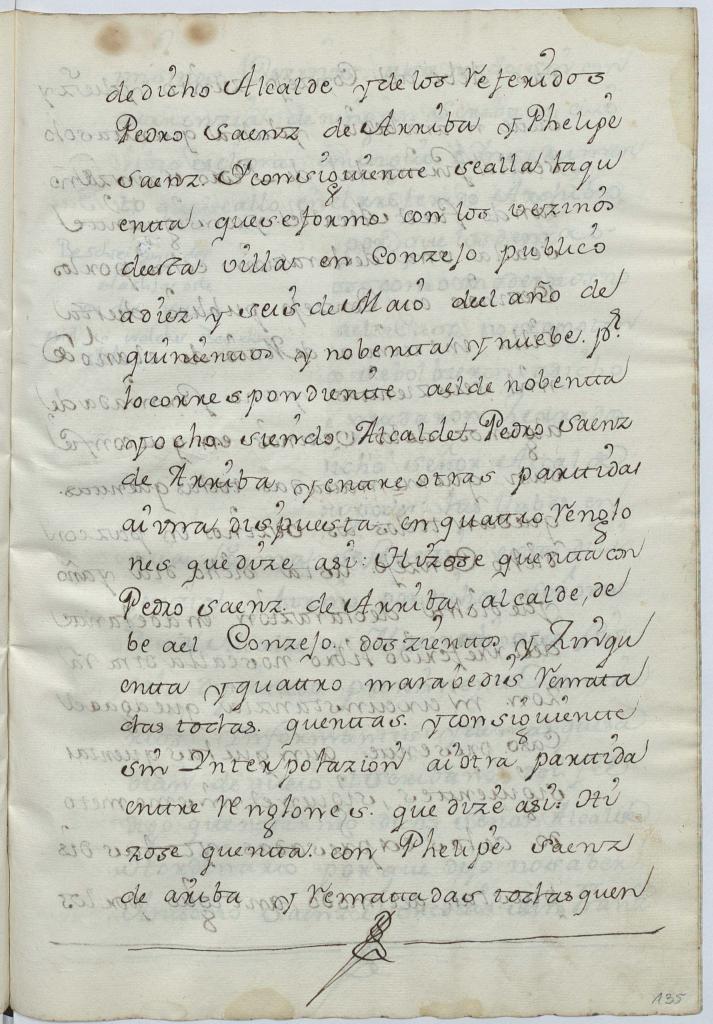 de dicho Alcalde y de los referidos
Pedro Saenz de Arriba y Phelipe
Saenz. Y consiguiente se alla la qu
entta que se formo con los vezinos
de esta villa en Conzejo publico
a diez y seis de Maio del año de
quinientos y nobentta y nuebe. pr.
lo correspondientte a el de nobentta
y ocho siendo Alcalde Pedro Saenz
de Arriba y enttre otras parttidas
ai vna dispuesta en quattro renglo
nes que dize asi: Hizose quentta con
Pedro Saenz. de Arriba, alcalde, de
be a el Conzejo. dos zientos y Zinqu
entta y quattro marabedis rematta
das todas. quenttas. y consiguientte
sin Interpolazion ai otra parttida
enttre renglones. que dize asi: Hi
zose quentta. con Phelipe Saenz
de ariba y remattadas todas quen
135